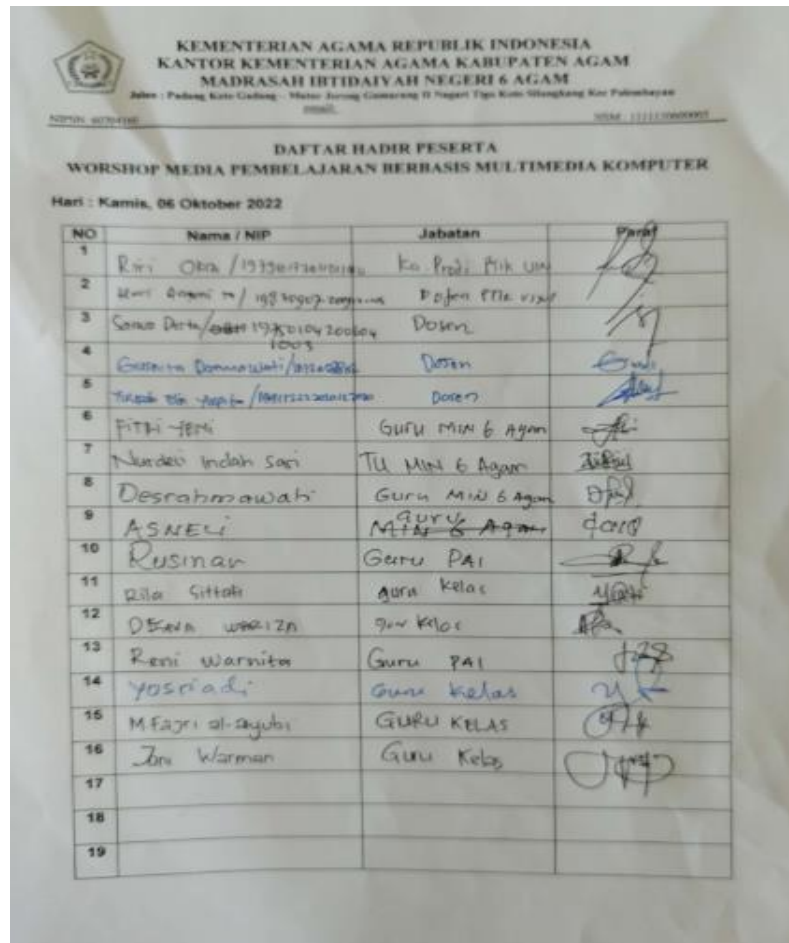 KEMENTERIAN AGAMA REPUBLIK INDONESIA
KANTOR KEMENTERIAN AGAMA KABUPATEN AGAM
MADRASAH IBTIDAIYAH NEGERI 6 AGAM
Jalan : Padang Koto Gadang - Matur Jorong Gumarang II Nagari Tigo Koto Silungkang Kec Palembayan
email.
DAFTAR HADIR PESERTA
WORSHOP MEDIA PEMBELAJARAN BERBASIS MULTIMEDIA KOMPUTER
Hari : Kamis, 06 Oktober 2022
NO Nama / NIP Jabatan Paraf
1 Riri Okra / Ka. Prodi
2 Dosen
3 Sarwo Derta / Dosen
1003
4 Dosen
5 Dosen
6 Fitri Yeni Guru MIN 6 Agam
7 Indah Sari TU MIN 6 Agam
8 Desrahmawati Guru MIN 6 Agam
9 ASNELI guru
MIN 6 Agam
10 Rusinar Guru PAI
11 Rila guru kelas
12 guru kelas
13 Reni Warnita Guru PAI
14 Yosriadi Guru kelas
15 M Fajri al-ayubi GURU KELAS
16 Joni Warman Guru Kelas
17
18
19